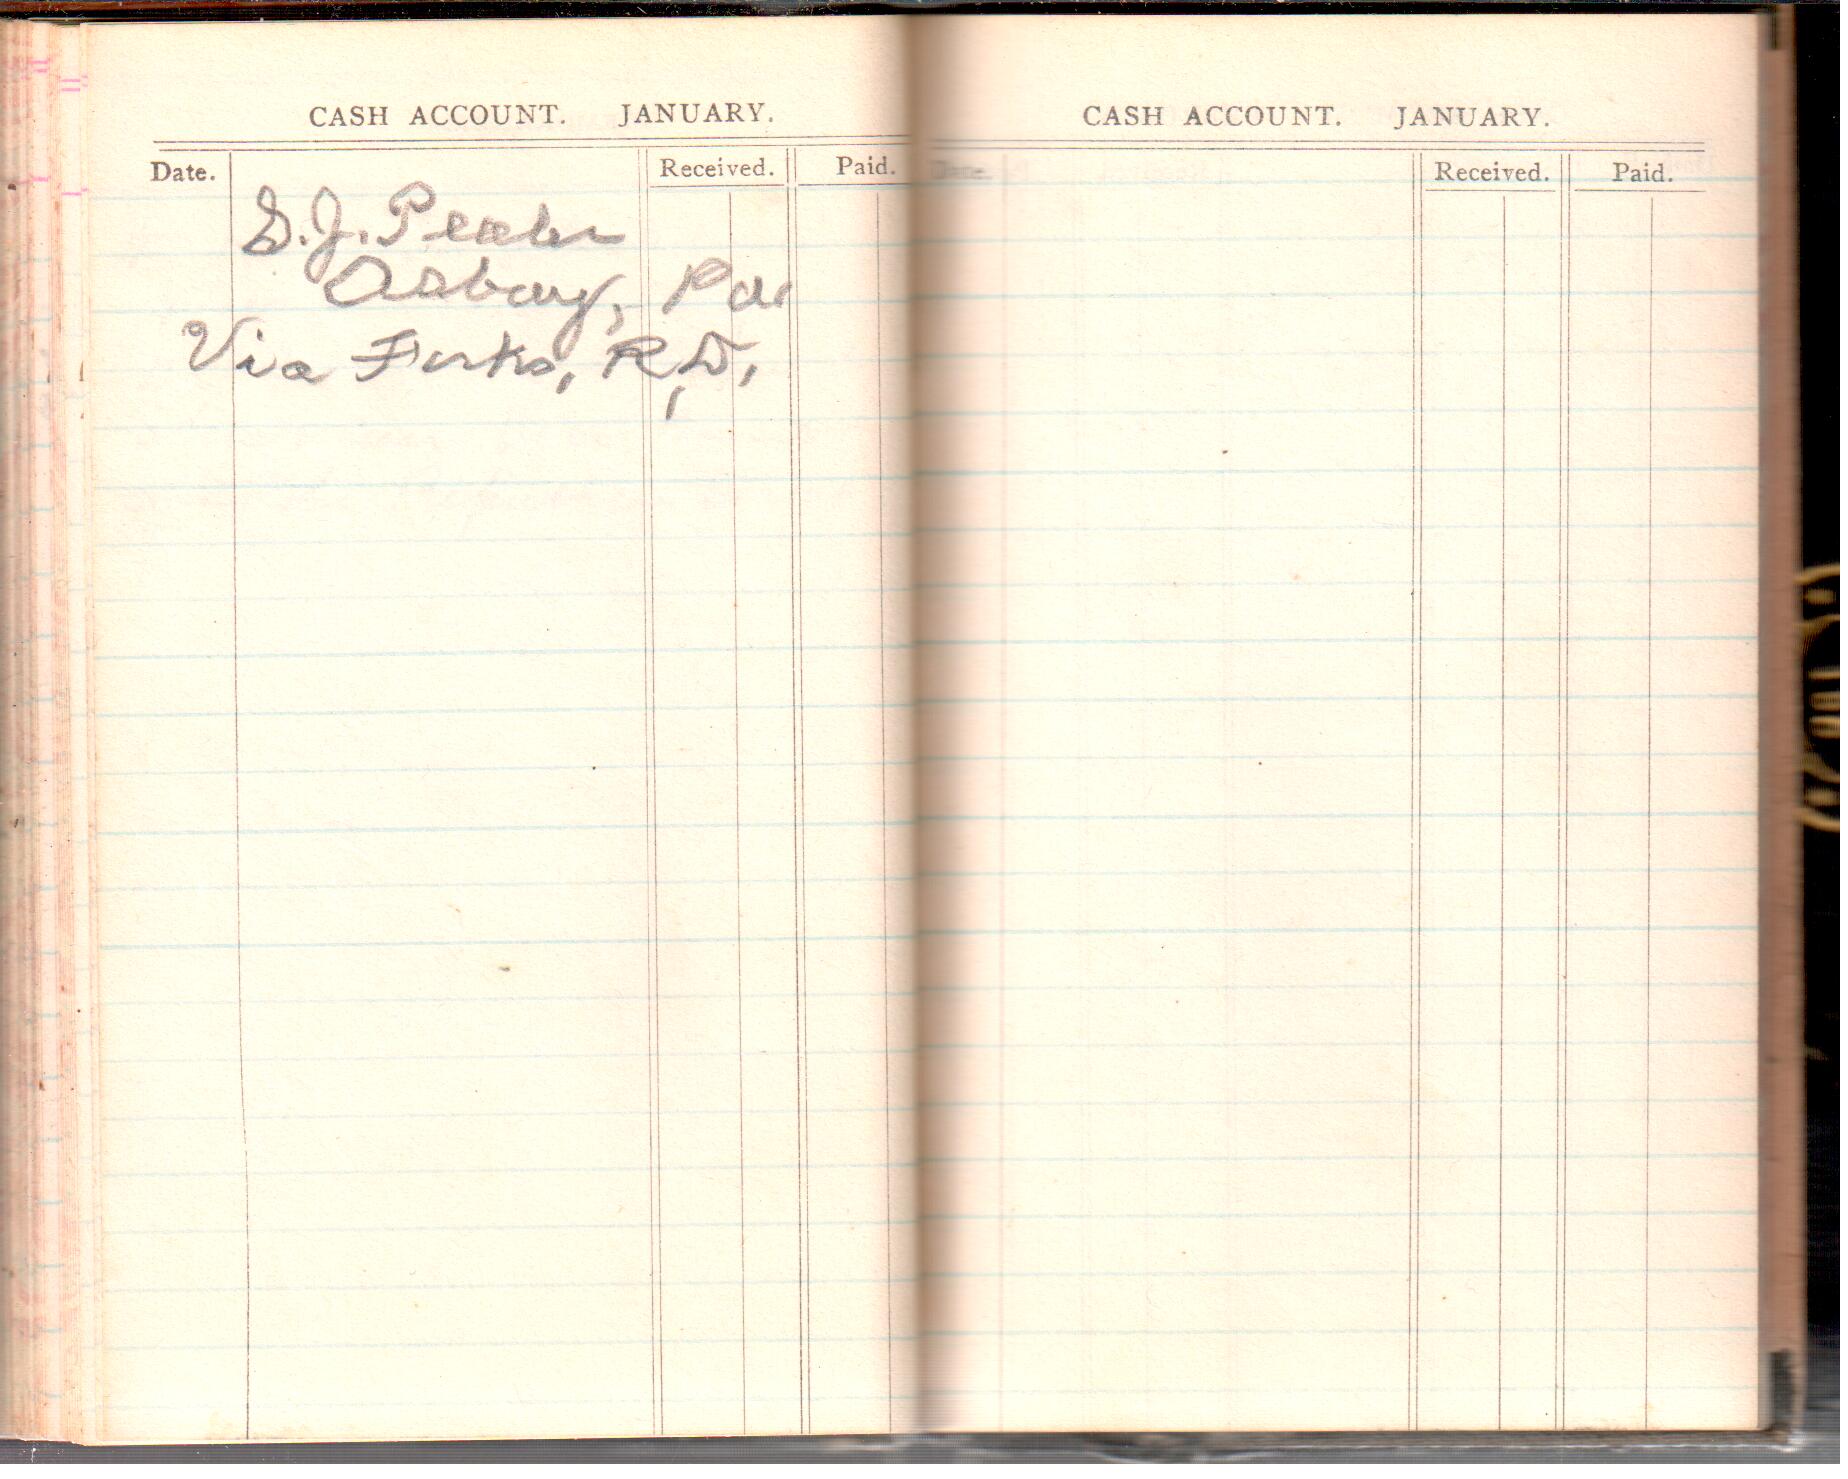 CASH ACCOUNT. JANUARY.
Date. Received. Paid.
S.J. Pealer
Asbury, Pa
Via Forks, R.D.
CASH ACCOUNT. JANUARY.
Received. Paid.